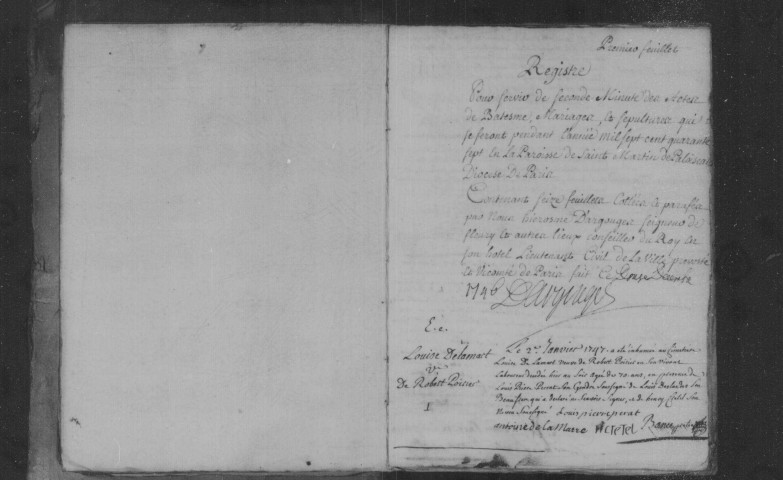 Premier feuillet
Registre
Pour servir de seconde Minute des Actes
de Batesme, Mariages, et sepultures qui
se feront pendant l'année mil sept cent quarante
sept en La Paroisse de Saint Martin de Palaiseau
Diocese De Paris
Contenant seize feuillets Cottés et paraffés
par Nous hierosme Dargouges seigneur de
fleury et autres lieux conseiller du Roy en
son hotel Lieutenant Civil de La Ville prevosté
et Vicomté de Paris fait ce
1746 Dargouges
Louise Delamart
Ve
De Robert Poirier
1
Le 2e Janvier 1747 a été inhumée au Cimetiere
Louise De Lamart veuve de Robert Poirier
au soir agée de 70 ans, en presence de
Louis Pierre Perat son Gendre Soussigné de Louis Deslandes son
Beaufrere qui a declaré ne sçavoir signer, et de
Neveu Soussigné Louis pierre perat
antoine de la Marre